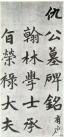 仇公墓碑銘有序
翰林學士承
自榮祿大夫